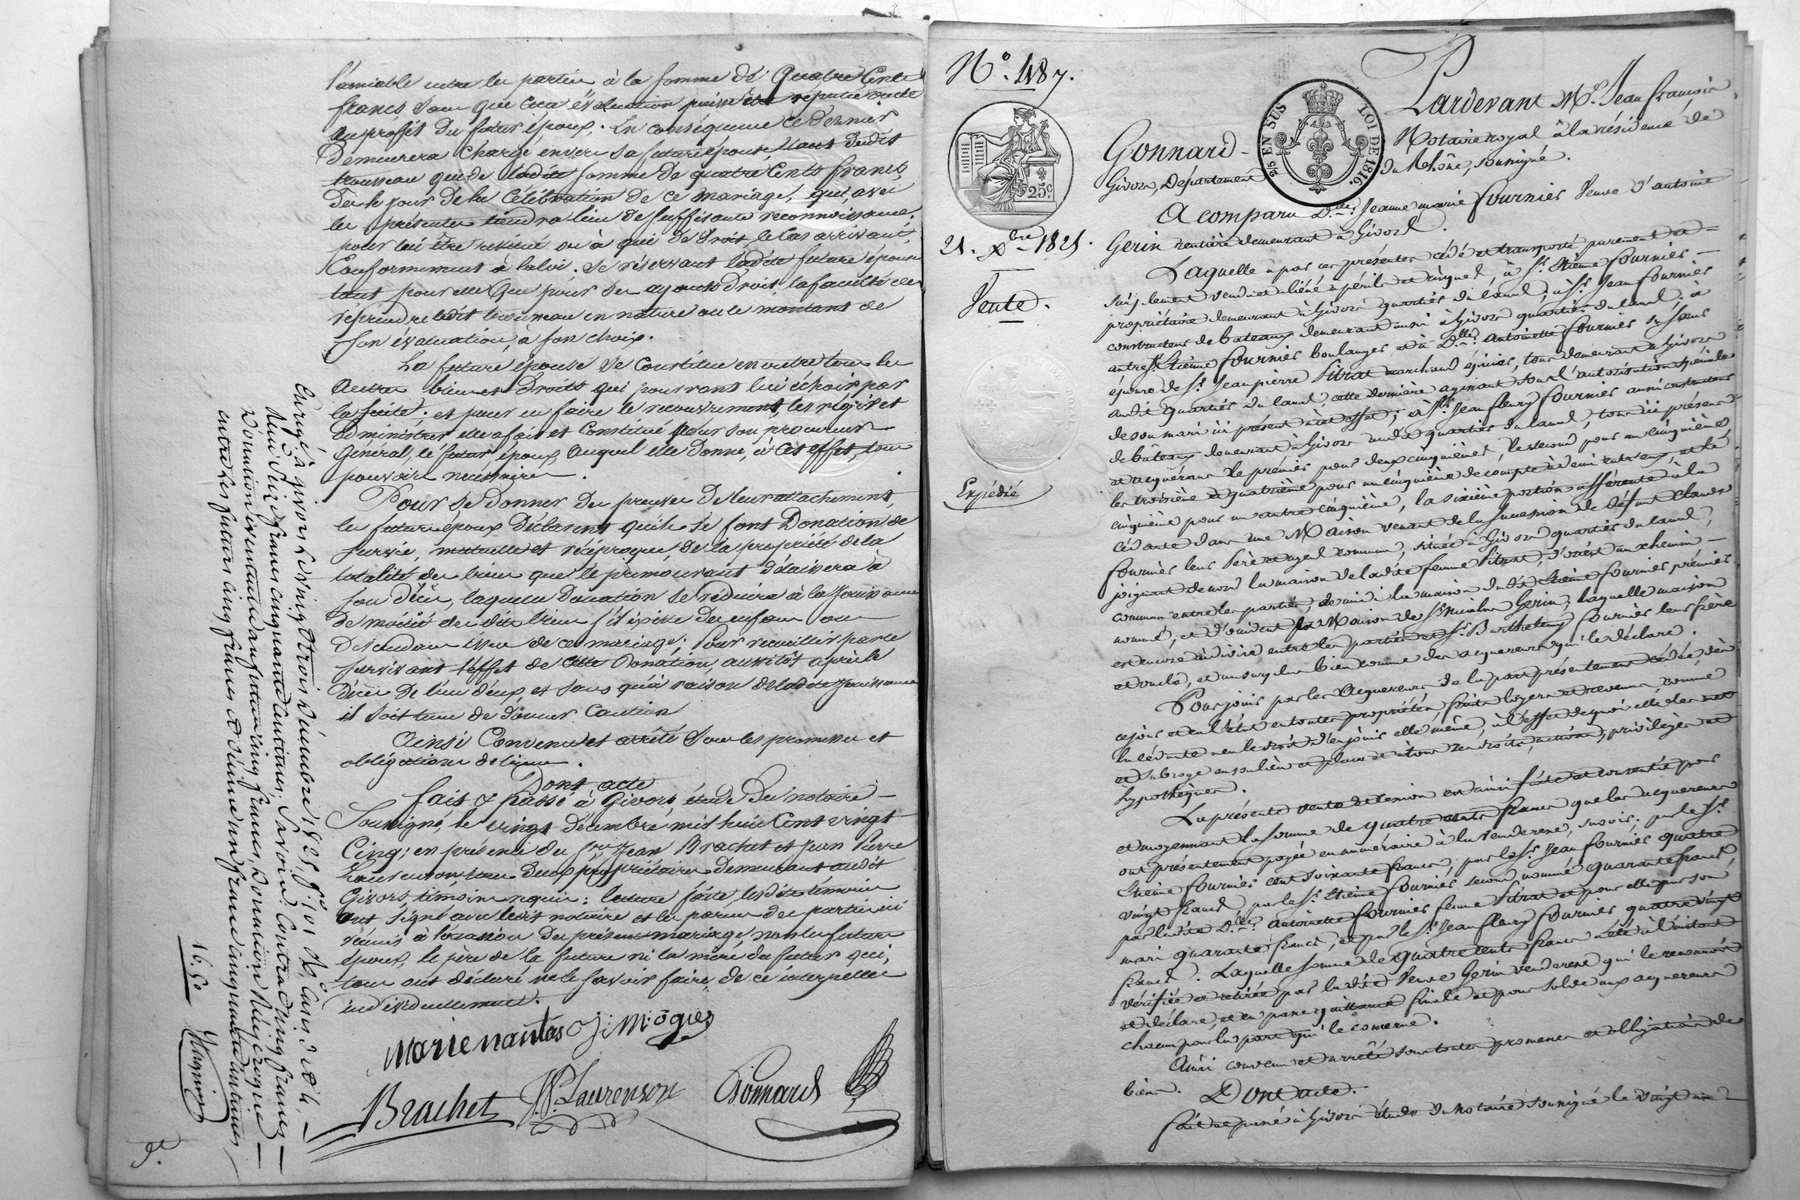 l'amiable entre les parties à la somme de Quatre Cents
francs sans que cette évaluation puisse être réputée vente
au profit du futur époux. En conséquence ce dernier
demeurera chargé envers sa future épouse tant dudit
trousseau que de ladite somme de quatre Cents francs,
dès le jour de la Célébration de ce mariage, qui, avec
les présentes tiendra lieu de suffisante reconnoissance,
pour lui être restitué ou à qui de droit, le Cas arrivant,
Conformément à la loi. Se réservant ladite future épouse
tant pour elle que pour ses ayants Droit, la faculté de
reprendre ledit trousseau en nature ou le montant de
son évaluation, à son choix.
La future épouse se Constitue en outre tous les
autres biens et Droits qui pourront lui échoir par
la suite. et pour en faire le recouvrement, les régir et
administrer elle a fait et Constitué pour son procureur
Général, le futur époux, auquel elle donne, à cet effet, tous
pouvoirs nécessaires.
Pour se donner des preuves de leur attachement,
les futurs époux Déclarent qu'ils se font Donation de
survie, mutuelle et réciproque, de la propriété de la
totalité des biens que le prémourant délaissera à
son décès, laquelle donation se réduira à la Jouissance
de moitié desdits biens s'il existe des enfans ou
Descendans issus de ce mariage; Pour recueillir par le
survivant l'effet de cette Donation, aussitôt après le
décès de l'un d'eux, et sans qu'à raison de ladite Jouissance
il soit tenu de donner Caution
Ainsi Convenu et arrêté sous les promesses et
obligations de biens.
Dont acte
fait & Passé à Givors, étude du notaire
Soussigné, le vingt décembre mil huit Cent vingt
Cinq; en présence des Srs Jean Brachet et Jean Pierre
Laurenson tous Deux propriétaires demeurant audit
Givors, témoins requis: lecture faite, lesdits témoins
ont Signé avec ledit notaire et les parens des parties ici
réunis à l'occasion du présent mariage non les futurs
époux, le père de la future ni la mère du futur qui,
tous ont déclaré ne le savoir faire de ce interpellés
individuellement.
Marie nantas J: Mogies
Brachet JP. Laurenson Gonnard
Enregé à givors le vingt trois décembre 1825, fo 101 Ro Cases 2 et 4,
Reçu Seize francs cinquante centimes, Savoir: Contrat cinq francs
Donation éventuelle aux futurs cinq francs, Donation réciproque
entre les futurs cinq francs et dixième un franc cinquante centimes
16, 50
No. 487.
25c
25 EN SUS LOI DE 1816.
21. Xbre 1825.
Vente.
Expédié
Pardevant Me Jean françois
Gonnard Notaire royal à la résidence de
Givors, Département du Rhône, soussigné.
A comparu De Jeanne marie fournier Veuve d'antoine
Gerin rentière demeurant à Givors.
Laquelle a par ces présentes cédé et transporté purement et
simplement vendu et aliéné à péril et risques, à Sr. Etienne fournier
propriétaire demeurant à Givors quartier du canal, à Sr. Jean fournier
constructeur de bateaux demeurant aussi à Givors quartier du canal, à
autre Sr. Etienne fournier boulanger et à De. Antoinette fournier
épouse de Sr. Jean pierre Vitrat marchand épicier, tous demeurant à Givors
audit quartier du canal, cette dernière agissant sous l'autorisation
de son mari ici présent à cet effet; à Sr. Jean fleury fournier aussi constructeur
de bateaux demeurant à Givors audit quartier du canal, tous ici présens
et acquérans le premier pour deux cinquièmes, le second pour un cinquième,
les troisième et quatrième pour un cinquième de compte à demi entr'eux, et le
cinquième pour un autre cinquième, la sixième portion afférente à la
Cédante dans une Maison venant de la succession de défunt Claude
fournier leur Père et ayeul commun, située à Givors quartier du canal,
joignant de nord la maison de ladite femme Vitrat, d'orient un chemin
commun entre les parties, de midi la maison dudit Etienne fournier premier
nommé, et d'occident la Maison de Sr. Nicolas Gerin, laquelle maison
est encore indivise entre les parties et Sr. Barthelemy fournier leur frère
et oncle, et un surplus bien connue des acquéreurs qui le déclare.
Pour jouir par les Acquéreurs de la part présentement cédée dès
ce jour et en l'état en toute propriété, fruits loyers et revenus comme
la cédante a eu le droit d'en jouir elle même, à l'effet de quoi elle les met
et subroge en son lieu et place et à tous ses droits, actions, priviléges et
hypothèques.
La présente vente et cession est ainsi faite et consentie pour
et moyennant la somme de quatre cents francs que les acquéreurs
ont présentement payée en numéraire à la venderesse, savoir, par le Sr.
Etienne fournier cent soixante francs, par le Sr. Jean fournier quatre
vingt francs, par le Sr. Etienne fournier second nommé quarante francs,
par ladite De. Antoinette fournier femme Vitrat et pour elle par son
mari quarante francs, et par le Sr. Jean fleury fournier quatre vingt
francs. Laquelle somme de quatre cents francs a été à l'instant
vérifiée et retirée par ladite Veuve Gerin venderesse qui le reconnoît
et déclare, et en passe quittance finale et pour solde aux acquéreurs
chacun pour la part qui le concerne.
Ainsi convenu et arrêté sous toutes promesses et obligation de
biens. Dont acte.
fait et passé à Givors étude du Notaire soussigné le vingt un